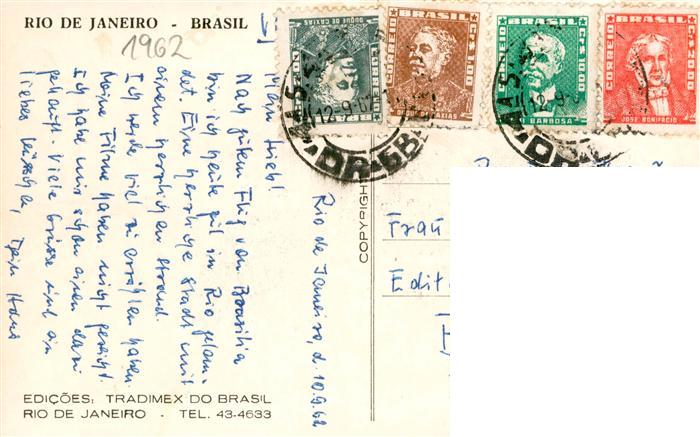 RIO DE JANEIRO - BRASIL
1962
Rio de Janeiro, d. 10.9.62
Mein Lieb!
Nach gutem Flug von Brasilia
bin ich heute gut in Rio gelan-
det. Eine herrliche Stadt mit
einem herrlichen Strand.
Ich werde viel zu erzählen haben.
Meine Filme haben nicht gereicht.
Ich habe mir schon einen dazu
gekauft. Viele Grüsse und ein
liebes Küsschen, Dein Hans
EDIÇÕES: TRADIMEX DO BRASIL
RIO DE JANEIRO - TEL. 43-4633
COPYRIGHT
DUQUE DE CAXIAS
CORREIO
BRASIL
CORREIO
CR$ 1,00
DUQUE DE CAXIAS
BRASIL
CORREIO
CR$ 10,00
BARBOSA
BRASIL
CORREIO
CR$ 20,00
JOSÉ BONIFÁCIO
12-9-62
12-9
Frau
Edit